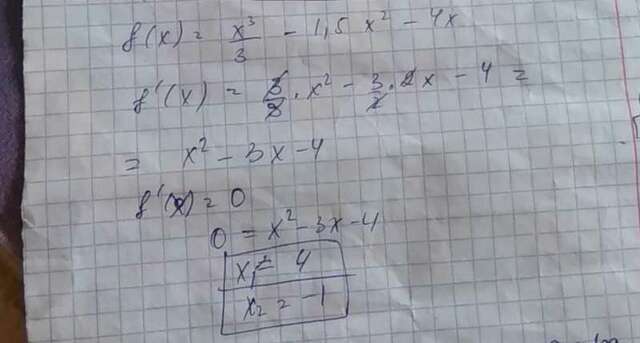 f(x) = x³/3 - 1,5x² - 4x
f'(x) = 3/3 · x² - 3/2 · 2x - 4 =
= x² - 3x - 4
f'(x) = 0
0 = x² - 3x - 4
x₁ = 4
x₂ = -1